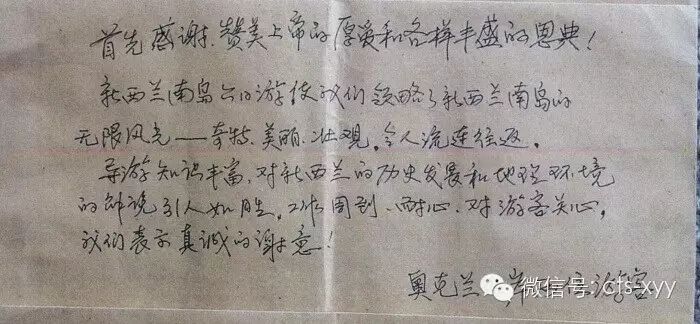 首先感谢、赞美上帝的厚爱和各样丰盛的恩典！
新西兰南岛六日游使我们领略了新西兰南岛的
无限风光——奇特、美丽、壮观。令人流连往返。
导游知识丰富，对新西兰的历史发展和地理环境
的解说引人如胜，工作周到、耐心、对游客关心，
我们表示真诚的谢意！
奥克兰 游客
微信号: cfs-xyy